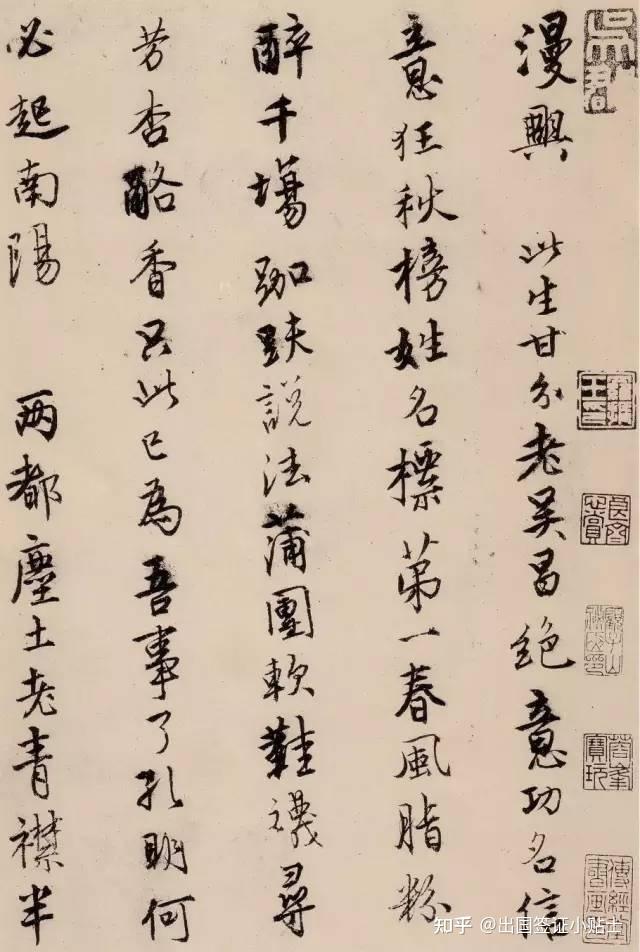 漫興 此生甘分老吴昌絶意功名信
意狂秋榜姓名標第一春風脂粉
醉千場跏趺說法蒲團軟鞋襪尋
芳杏酪香只此已為吾事了孔明何
必起南陽 两都塵土老青襟半
知乎 @出国签证小贴士